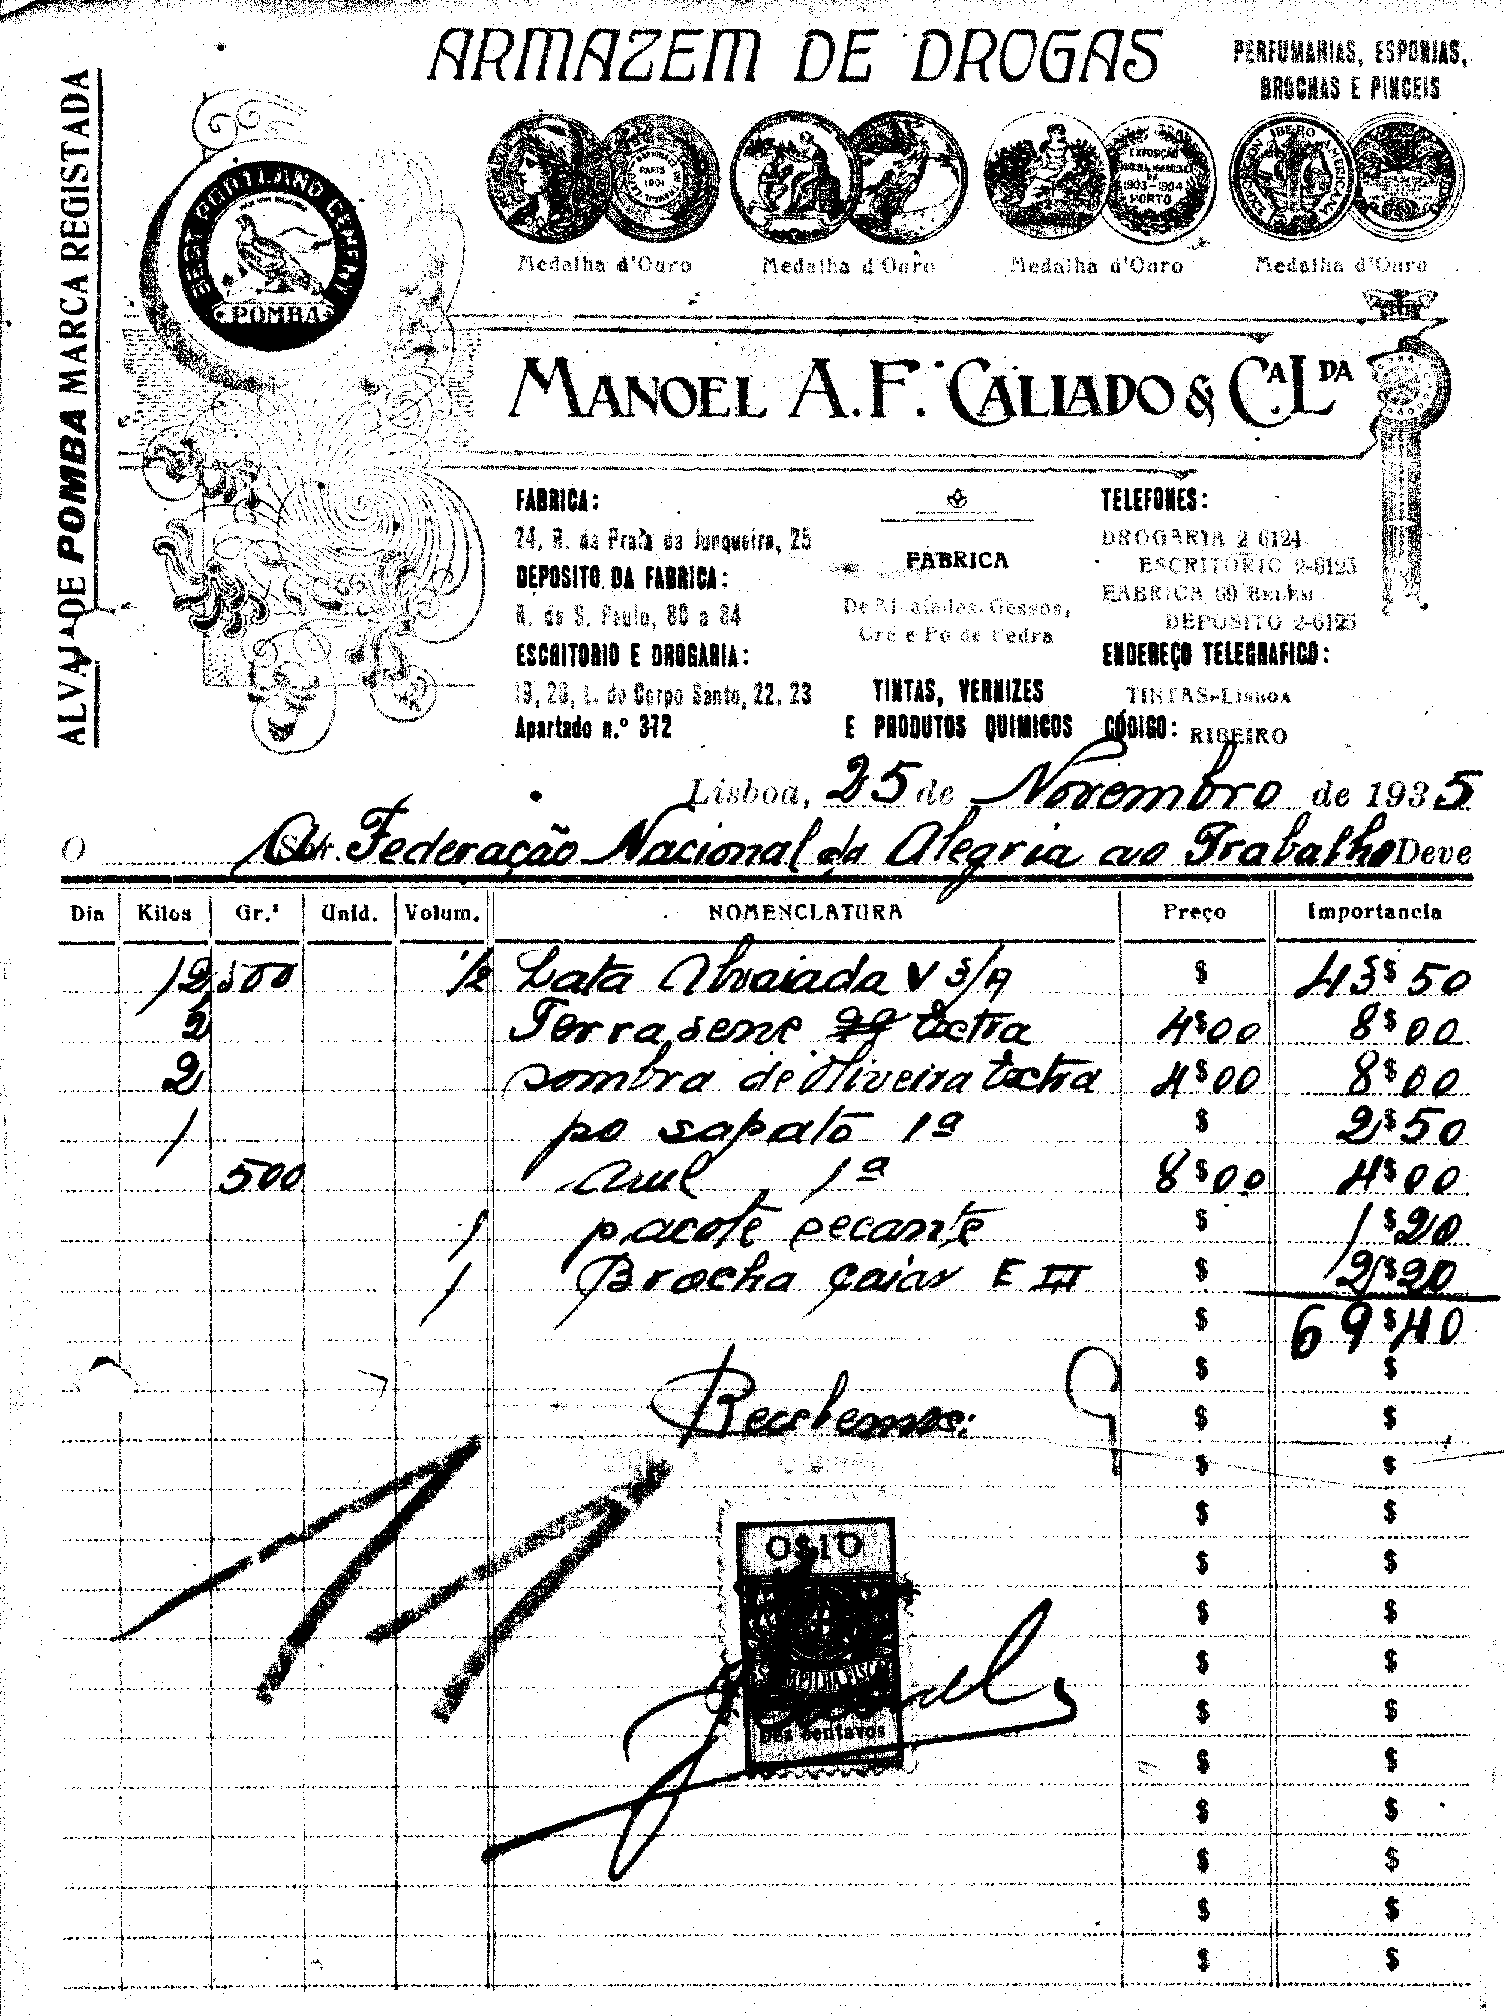 ARMAZEM DE DROGAS
PERFUMARIAS, ESPONJAS,
BROCHAS E PINCEIS
ALVAIADE POMBA MARCA REGISTADA
BEST PORTLAND CEMENT
POMBA
PARIS
1901
EXPOSIÇÃO
1903-1904
PORTO
Medalha d'Ouro
Medalha d'Ouro
Medalha d'Ouro
Medalha d'Ouro
MANOEL A. F. CALLADO & CA. LDA
FABRICA:
24, R. da Praia da Junqueira, 25
DEPOSITO DA FABRICA:
R. de S. Paulo, 80 a 84
ESCRITORIO E DROGARIA:
19, 20, L. do Corpo Santo, 22, 23
Apartado n.º 372
FABRICA
De Alvaiades, Gessos,
Cré e Pó de Pedra
TINTAS, VERNIZES
E PRODUTOS QUIMICOS
TELEFONES:
DROGARIA 2 6124
ESCRITORIO 2-6125
FABRICA 60 BELEM
DEPOSITO 2-6125
ENDEREÇO TELEGRAFICO:
TINTAS-LISBOA
CÓDIGO: RIBEIRO
Lisboa, 25 de Novembro de 1935
O Snr. Federação Nacional da Alegria ao Trabalho Deve
Dia Kilos Gr.s Unid. Volum. NOMENCLATURA Preço Importancia
12 500 1/2 Lata Alvaiada V 3/A $ 43$50
2 Terra sene extra 4$00 8$00
2 sombra de Oliveira extra 4$00 8$00
1 po sapato 1ª $ 2$50
500 azul 1ª 8$00 4$00
1 pacote secante $ 1$20
1 Brocha caiar E III $ 2$20
$ 69$40
Recebemos:
$ $
$ $
$ $
$ $
$ $
$ $
$ $
$ $
$ $
$ $
$ $
$ $
$ $
0$10
ESTAMPILHA FISCAL
Dez centavos